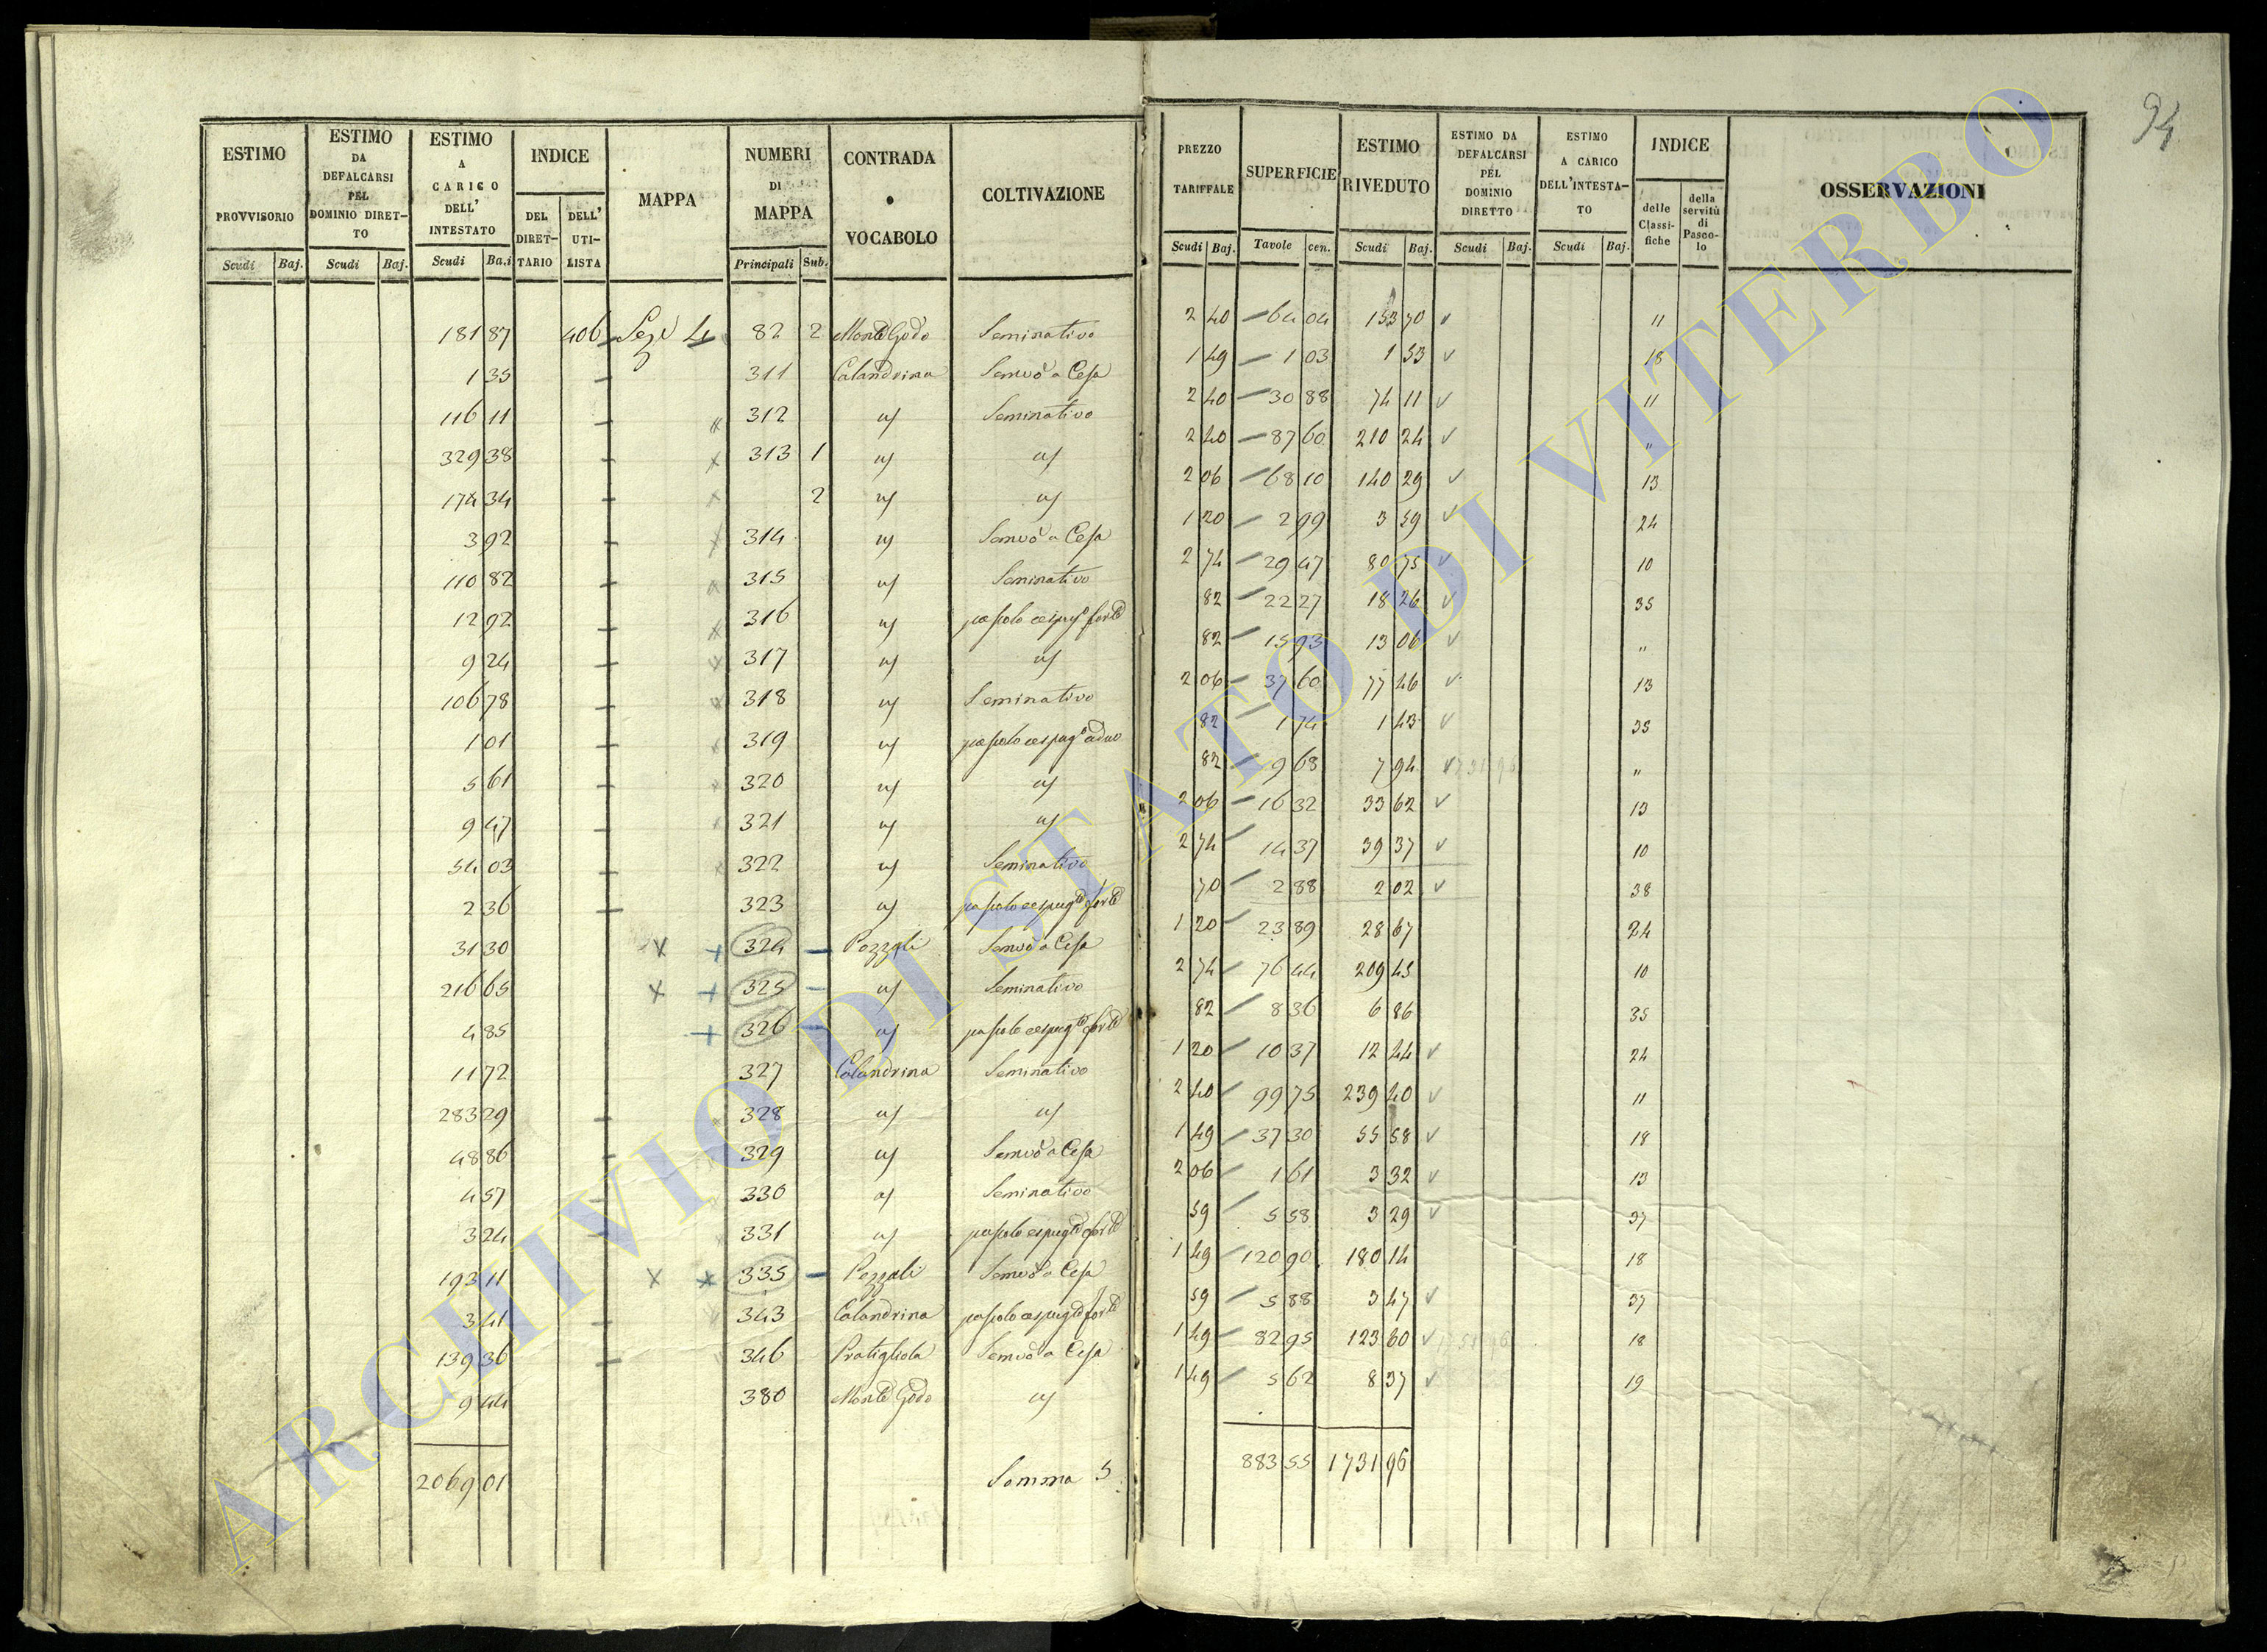 94
ESTIMO PROVVISORIO Scudi Baj. ESTIMO DA DEFALCARSI PEL DOMINIO DIRETTO Scudi Baj. ESTIMO A CARICO DELL' INTESTATO Scudi Baj INDICE DEL DIRETTARIO DELL' UTILISTA MAPPA NUMERI DI MAPPA Principali Sub. CONTRADA o VOCABOLO COLTIVAZIONE PREZZO TARIFFALE Scudi Baj. SUPERFICIE Tavole cen. ESTIMO RIVEDUTO Scudi Baj. ESTIMO DA DEFALCARSI PEL DOMINIO DIRETTO Scudi Baj. ESTIMO A CARICO DELL'INTESTATO Scudi Baj. INDICE delle Classifiche della servitù di Pascolo OSSERVAZIONI
181 87 406 Seze 4 82 2 Monte Godo Seminativo 2 40 64 04 153 70 11
1 35 311 Calandrina Semvo a Cesa 1 49 1 03 1 53 18
116 11 312 " Seminativo 2 40 30 88 74 11 11
329 38 313 1 " " 2 40 87 60 210 24 "
174 34 2 " " 2 06 68 10 140 29 13
3 92 314 " Semvo a Cesa 1 20 2 99 3 59 24
110 82 315 " Seminativo 2 74 29 47 80 75 10
12 92 316 " pascolo cespugo forte 82 22 27 18 26 35
9 24 317 " " 82 15 93 13 06 "
106 78 318 " Seminativo 2 06 37 60 77 46 13
1 01 319 " pascolo cespugo 82 1 74 1 43 35
5 61 320 " " 82 9 68 7 94 "
9 47 321 " " 2 06 16 32 33 62 13
54 03 322 " Seminativo 2 74 14 37 39 37 10
2 36 323 " pascolo cespugto forte 70 2 88 2 02 38
31 30 324 Pozzali Semvo a Cesa 1 20 23 89 28 67 24
216 65 325 " Seminativo 2 74 76 44 209 45 10
4 85 326 " pascolo cespugto forte 82 8 36 6 86 35
11 72 327 Calandrina Seminativo 1 20 10 37 12 44 24
283 29 328 " " 2 40 99 75 239 40 11
48 86 329 " Semvo a Cesa 1 49 37 30 55 58 18
4 57 330 " Seminativo 2 06 1 61 3 32 13
3 24 331 " pascolo cespugto forte 59 5 58 3 29 37
193 11 335 Pozzali Semvo a Cesa 1 49 120 90 180 14 18
3 41 343 Calandrina pascolo cespugto forte 59 5 88 3 47 37
139 36 346 Pratigliola Semvo a Cesa 1 49 82 95 123 60 18
9 44 380 Monte Godo " 1 49 5 62 8 37 19
2069 01 Somma S 883 55 1731 96
ARCHIVIO DI STATO DI VITERBO